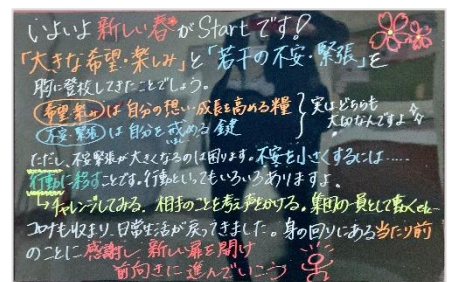 いよいよ新しい春がStartです!
「大きな希望・楽しみ」と「若干の不安・緊張」を
胸に登校してきたことでしょう。
希望・楽しみは自分の想い・成長を高める糧
不安・緊張は自分を戒める鍵
いまし
実はどちらも
大切なんですよ
ただし、不安緊張が大きくなるのは困ります。不安を小さくするには……
行動に移すことです。行動といってもいろいろありますよ。
チャレンジしてみる。相手のことを考え声をかける。集団の一員として動くetc
コロナも収まり、日常生活が戻ってきました。身の回りにある当たり前
のことに感謝し、新しい扉を開け
前向きに進んでいこう